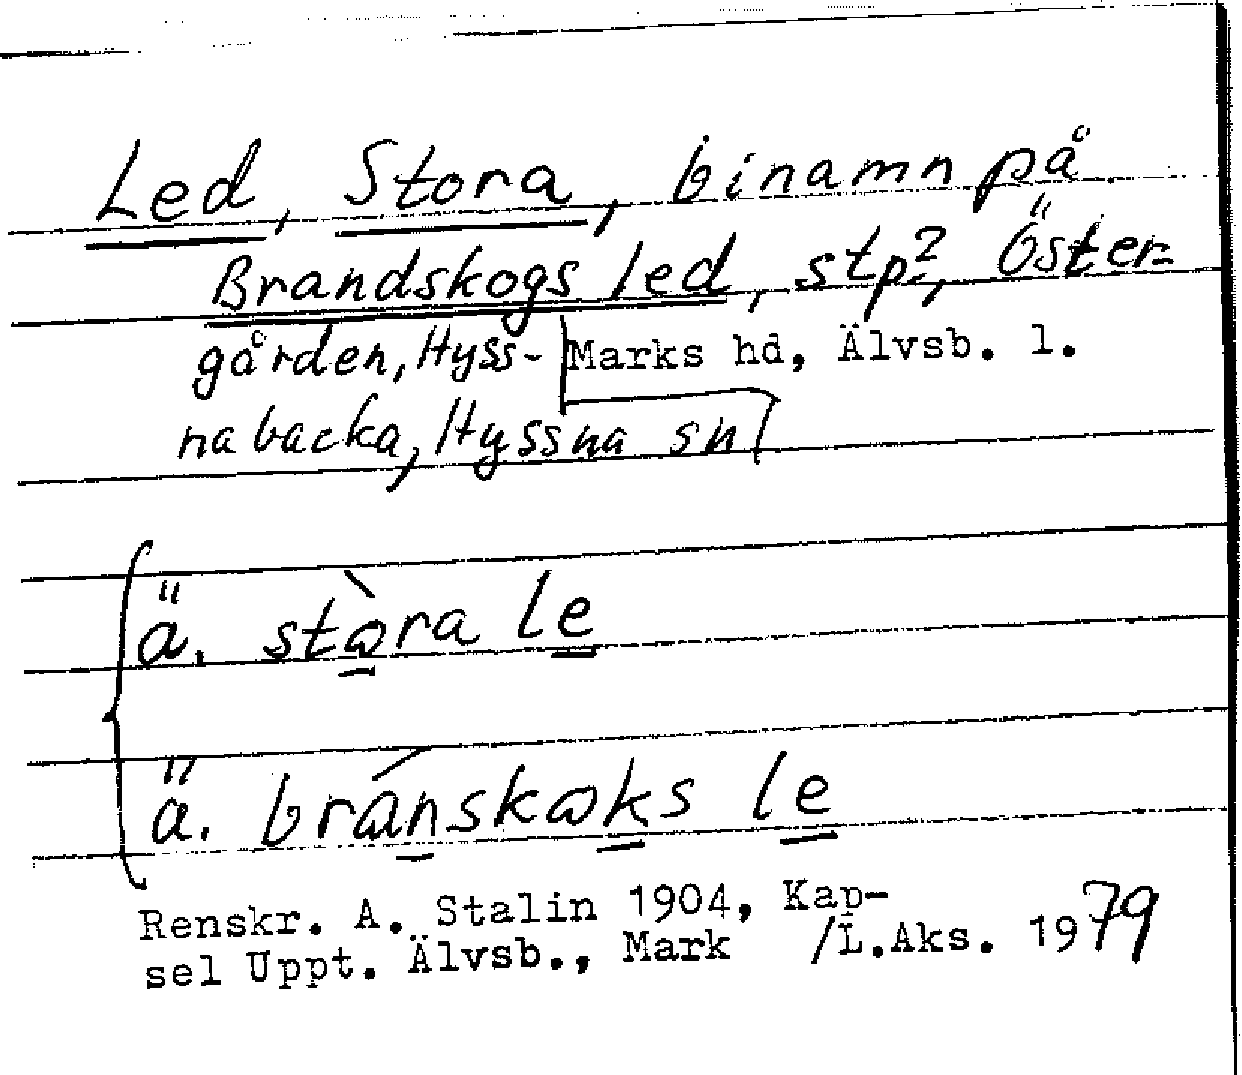 Led, Stora, binamn på
Brandskogs led, stp?, Öster-
gården, Hyss- Marks hd, Älvsb. l.
nabacka, Hyssna sn
ä. stòra le
ä. bránskɷks le
Renskr. A. Stalin 1904, Kap-
sel Uppt. Älvsb., Mark /L.Aks. 1979